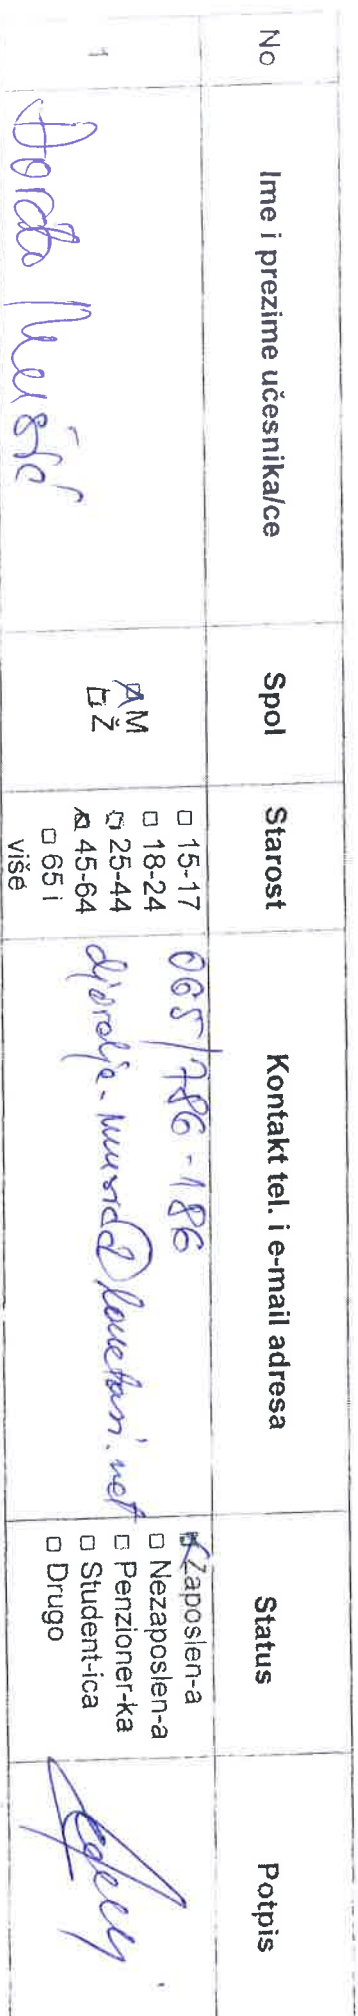 No
Ime i prezime učesnika/ce
Spol
Starost
Kontakt tel. i e-mail adresa
Status
Potpis
1
M
Ž
15-17
18-24
25-44
45-64
65 i
više
065/786-186
Zaposlen-a
Nezaposlen-a
Penzioner-ka
Student-ica
Drugo